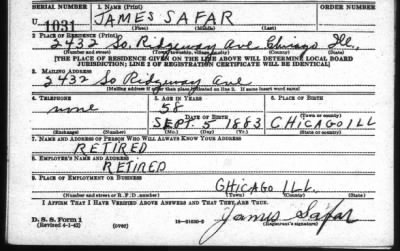 SERIAL NUMBER 1. NAME (Print) ORDER NUMBER
U 1031 JAMES SAFAR
(First) (Middle) (Last)
2. PLACE OF RESIDENCE (Print)
2432 So. Ridgeway Ave Chicago Ill.
(Number and street) (Town, township, village, or city) (County) (State)
[THE PLACE OF RESIDENCE GIVEN ON THE LINE ABOVE WILL DETERMINE LOCAL BOARD
JURISDICTION; LINE 2 OF REGISTRATION CERTIFICATE WILL BE IDENTICAL]
3. MAILING ADDRESS
2432 So Ridgeway Ave
[Mailing address if other than place indicated on line 2. If same insert word same]
4. TELEPHONE 5. AGE IN YEARS 6. PLACE OF BIRTH
none 58
DATE OF BIRTH (Town or county)
SEPT. 5 1883 CHICAGO ILL
(Exchange) (Number) (Mo.) (Day) (Yr.) (State or country)
7. NAME AND ADDRESS OF PERSON WHO WILL ALWAYS KNOW YOUR ADDRESS
RETIRED
8. EMPLOYER'S NAME AND ADDRESS
RETIRED
9. PLACE OF EMPLOYMENT OR BUSINESS
CHICAGO ILL.
(Number and street or R. F. D. number) (Town) (County) (State)
I AFFIRM THAT I HAVE VERIFIED ABOVE ANSWERS AND THAT THEY ARE TRUE.
James Safar
D. S. S. Form 1
(Revised 4-1-42) (over) (Registrant's signature)